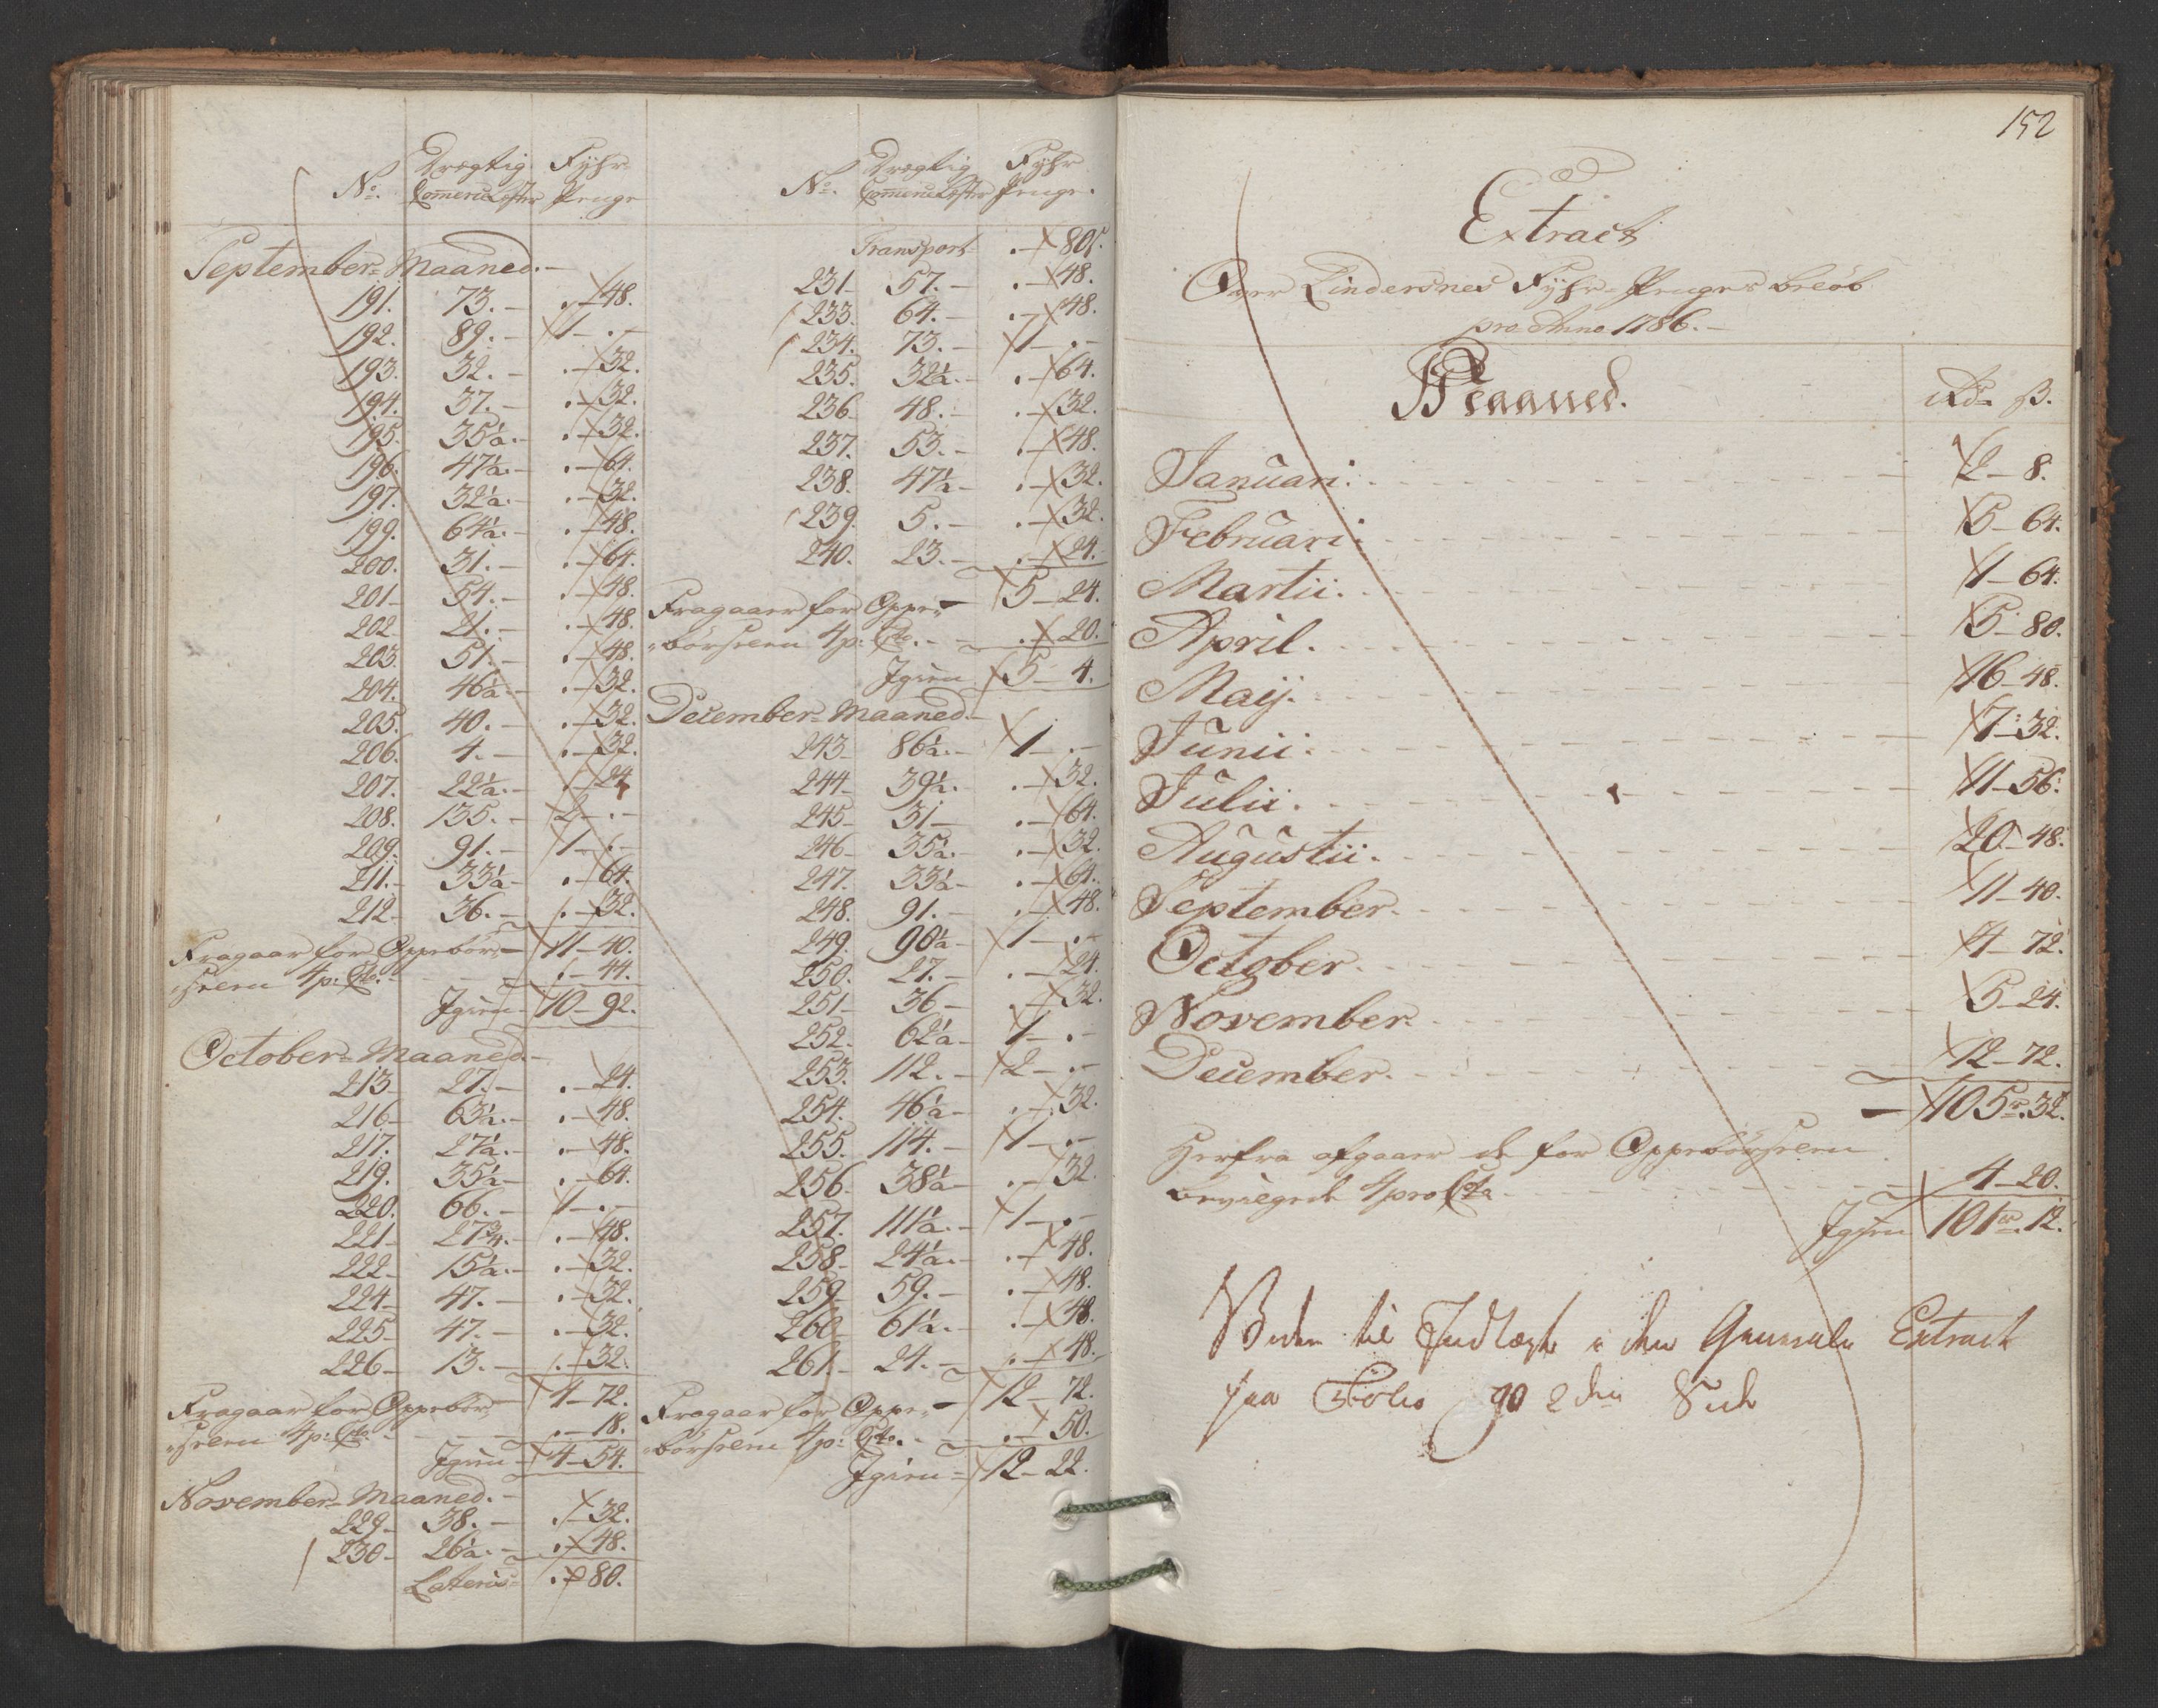 No. Drægtig Fyhr-
Commerce Læster Penge
September-Maaned.-
191. 73.- .-48.
192. 89.- 1-.-
193. 32.- .-32.
194. 37.- .-32.
195. 35½.- .-32.
196. 47½.- .-64.
197. 32½.- .-32.
199. 64½.- .-48.
200. 31.- .-64.
201- 54.- .-48.
202- 21.- .-48.
203. 51.- .-48.
204. 46½- .-32.
205. 40.- .-32.
206. 4.- .-32.
207. 22½.- .-24
208. 135.- 2-.-
209. 91.- 1-.-
211.- 33½- .-64.
212- 36.- .-32.
Fragaar for Oppebör- 11-40.
selen 4 p: Cto.- .-44.
Igien- 10-92.
October-Maaned.-
213- 27.- .-24.
216- 63½.- .-48.
217. 27½.- .-48.
219. 35½- .-64.
220. 66.- 1-.-
221- 27¾.- .-48.
222- 15½.- .-32.
224- 47.- .-32.
225- 47.- .-32.
226- 13.- .-32.
Fragaar for Oppebör- 4-72.
selen 4 p: Cto.- .-18.
Igien- 4-54.
November-Maaned.-
229- 38.- .-32.
230- 26½.- .-48.
Lateris- .-80.
No. Drægtig Fyhr
Commerce Læster Penge.
Transport- .-80s.
231- 57.- .-48.
233. 64.- .-48.
234. 73.- 1-.-
235. 32½.- .-64.
236- 48.- .-32.
237. 53.- .-48.
238. 47½- .-32.
239. 5.- .-32.
240. 23.- .-24.
Fragaaer for Oppe- 5-24.
börselen 4 p: Cto.- .-20.
Igien 5-4.
December-Maaned.-
243- 86½.- 1-.-
244- 39½. .-32.
245- 31- .-64.
246- 35½. .-32.
247. 33½- .-64.
248. 91.- .-48.
249. 90½- 1-.-
250. 27.- .-24.
251- 36- .-32.
252. 62½- 1-.-
253. 112.- 2-.-
254. 46½- .-32.
255. 114.- 1-.-
256- 38½- .-32.
257. 111½.- 1-.-
258- 24½.- .-48.
259- 59.- .-48.
260- 61½.- .-48.
261.- 24.- .-48.
Fragaar for Oppe- 12-72.
börselen 4 p: Cto.- .-50.
Igien- 12-22.
152
Extract
Over Lindersnes Fyhr-Penges belöb
pro Anno 1786.-
Maaned. Rd- ß.
Januari. 2-8.
Februari. 5-64.
Martii. 1-64.
April. 5-80.
Maij. 16-48.
Junii. 7-32.
Julii. 11-56.
Augustii. 20-48.
September. 11-40.
October. 4-72.
November. 5-24.
December. 12-72.
105r.32.
Herfra afgaaer de for Oppebörselen
4 pro Cto 4-20.
Igien 101r.12.
til Indtægt i den Generale Extract
paa Folio 90 2den Side